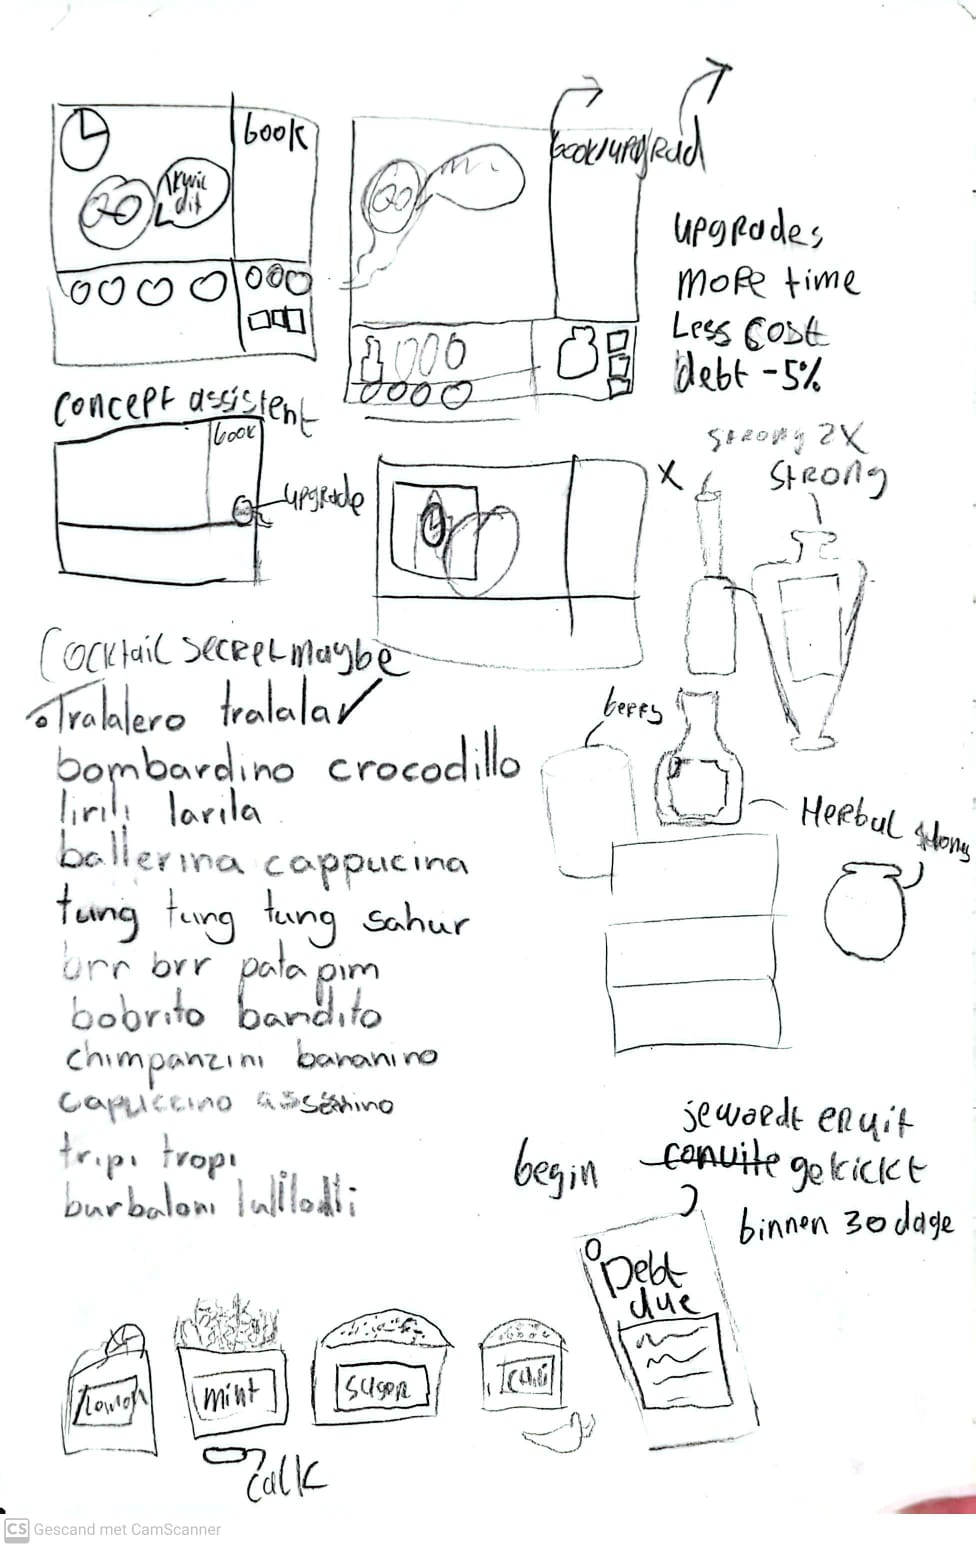 book
ik wil
dit
book/upgrad
upgrades
more time
Less cost
debt -5%
concept assistent
book
upgrade
strong 2X
X
strong
Cocktail secret maybe
Tralalero tralala
bombardino crocodillo
lirili larila
ballerina cappucina
tung tung tung sahur
brr brr patapim
bobrito bandito
chimpanzini bananino
capuccino assesino
tripi tropi
burbaloni lulilolli
berry
Herbal
Hony
begin
je wordt eruit
gekickt
binnen 30 dage
Debt
due
Lemon
mint
sugar
chili
calk
CS Gescand met CamScanner